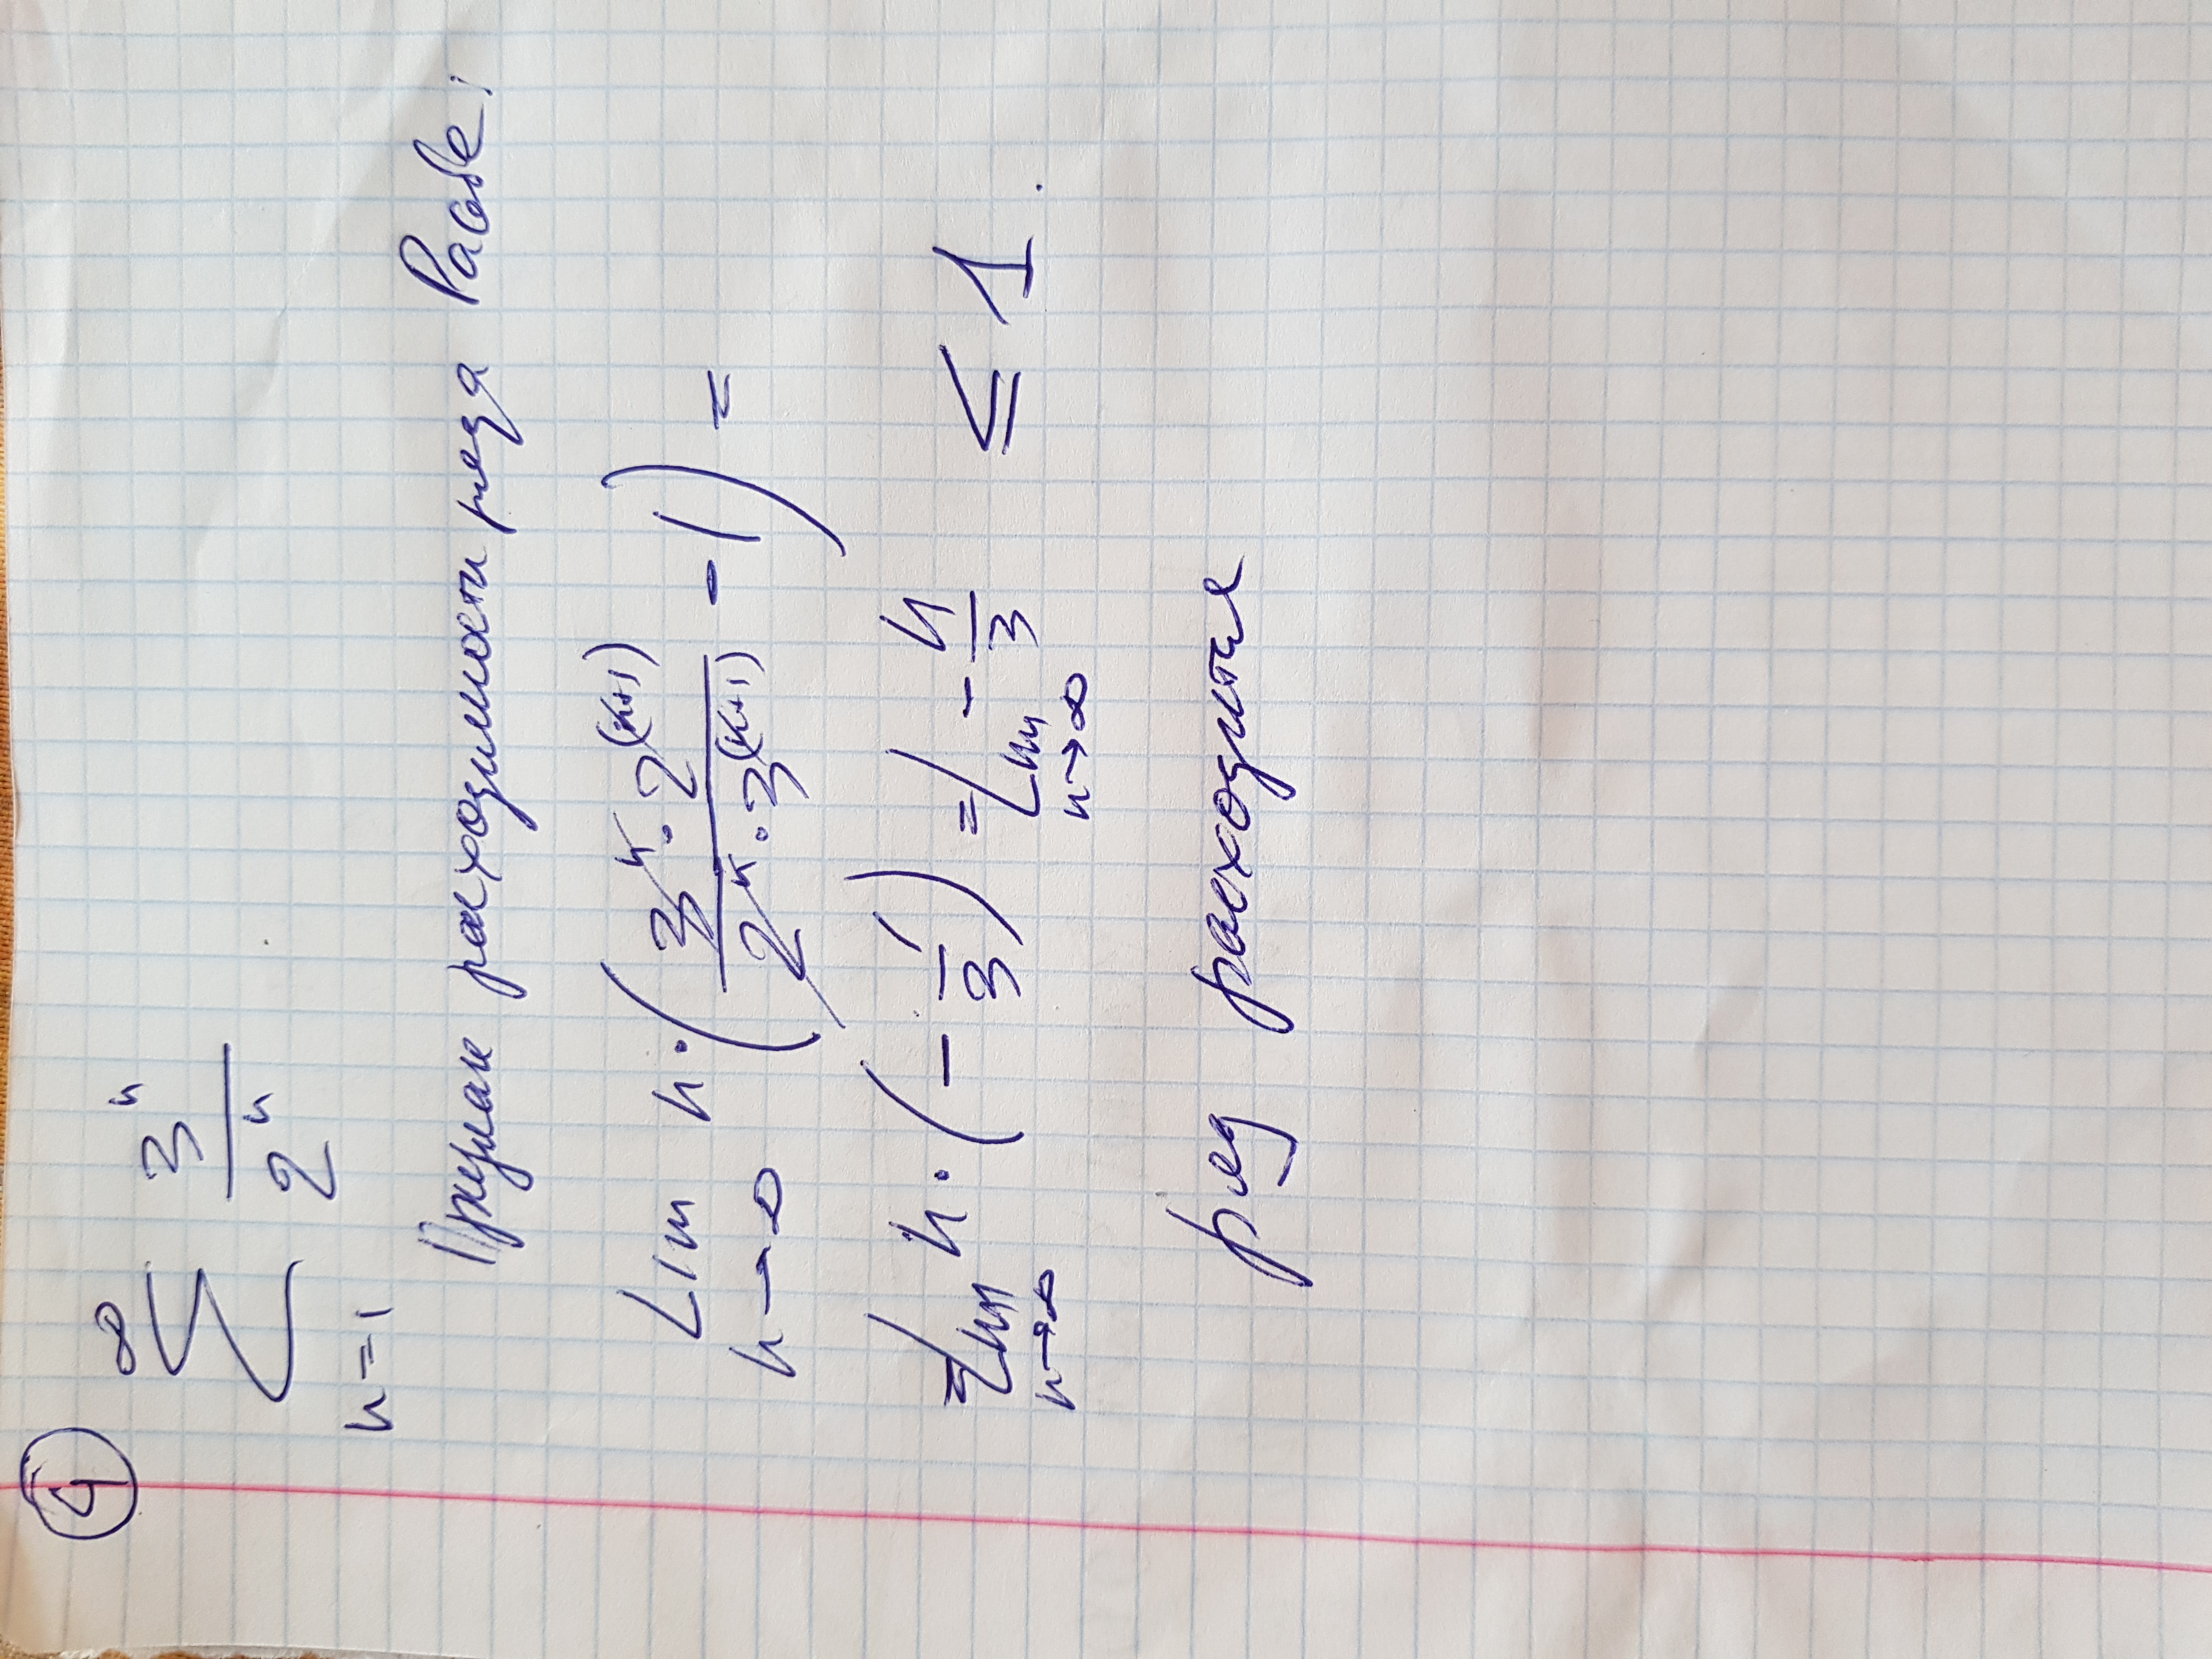 ④
∞
∑ 3ⁿ / 2ⁿ
n=1
Признак расходимости ряда Раабе:
Lim n→∞ n·(3ⁿ·2⁽ⁿ⁺¹⁾ / 2ⁿ·3⁽ⁿ⁺¹⁾ - 1) =
= Lim n→∞ n·(-1/3) = Lim n→∞ -n/3 ≤ 1.
ряд расходится